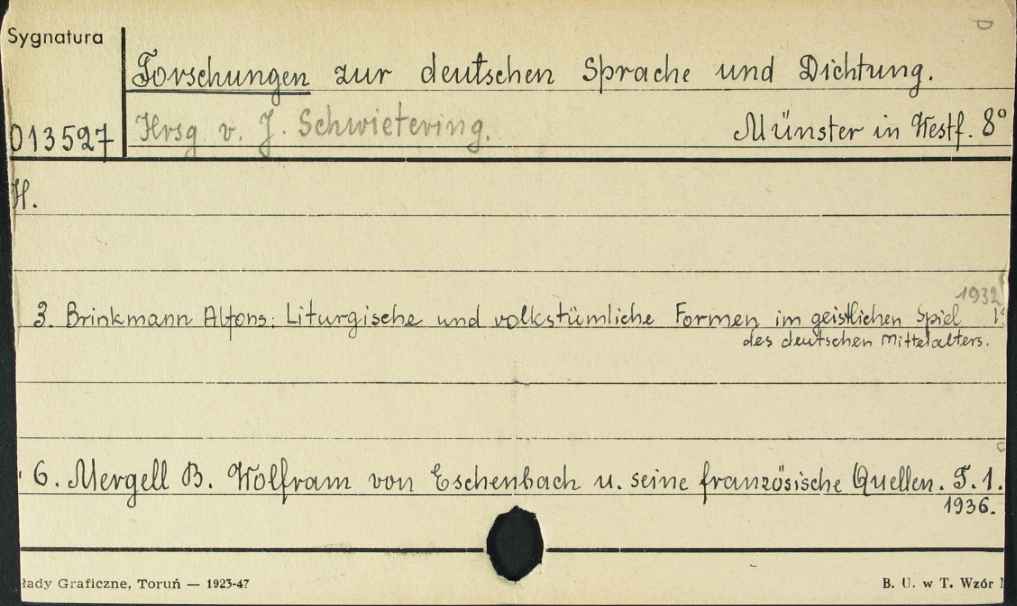 Sygnatura
Forschungen zur deutschen Sprache und Dichtung.
013527 Hrsg v. J. Schwietering. Münster in Westf. 8°
H.
1932
3. Brinkmann Alfons: Liturgische und volkstümliche Formen im geistlichen Spiel
des deutschen Mittelalters.
6. Mergell B. Wolfram von Eschenbach u. seine französische Quellen. T. 1.
1936.
łady Graficzne, Toruń — 1923-47 B. U. w T. Wzór